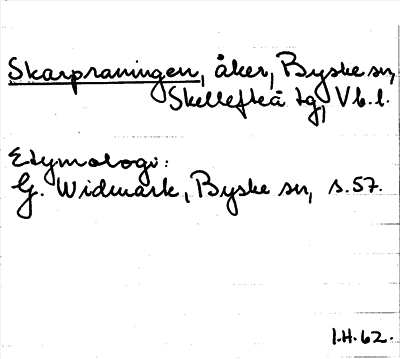 Skarpraningen, åker, Byske sn,
Skellefteå tg, Vb.l.
Etymologi:
G. Widmark, Byske sn, s.57.
I.H.62.